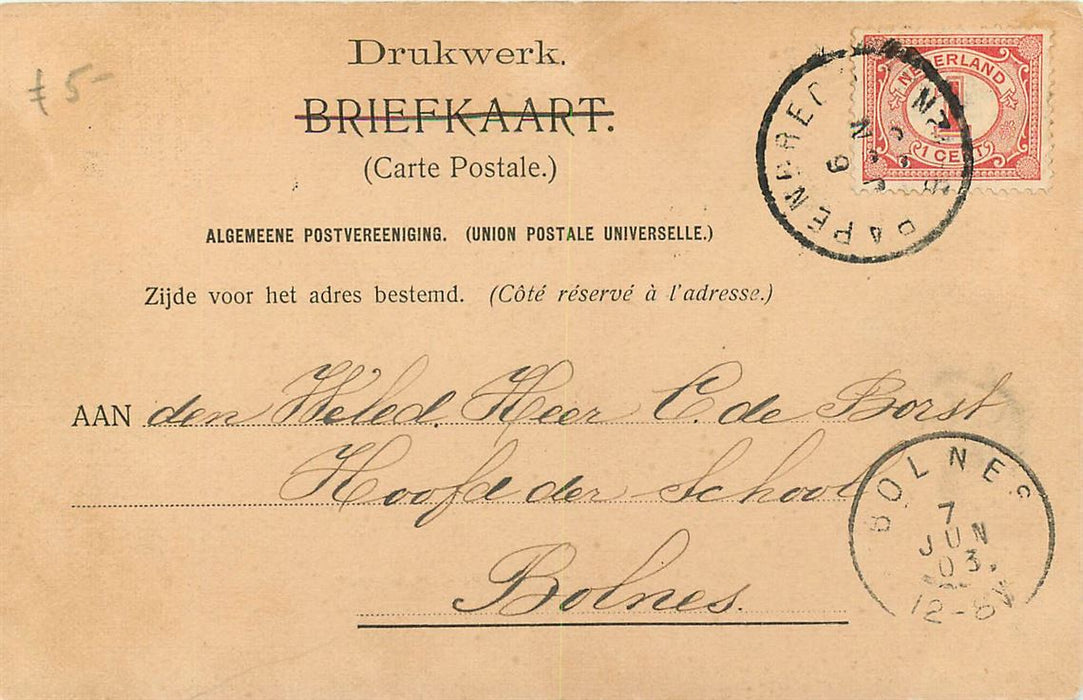 Drukwerk.
BRIEFKAART.
(Carte Postale.)
ALGEMEENE POSTVEREENIGING. (UNION POSTALE UNIVERSELLE.)
Zijde voor het adres bestemd. (Côté réservé à l'adresse.)
AAN den Weled. Heer C. de Borst
Hoofd der School
Bolnes.
5-
NEDERLAND
1
1 CENT
PAPENDREC
6
BOLNES
7
JUN
03.
12-6V